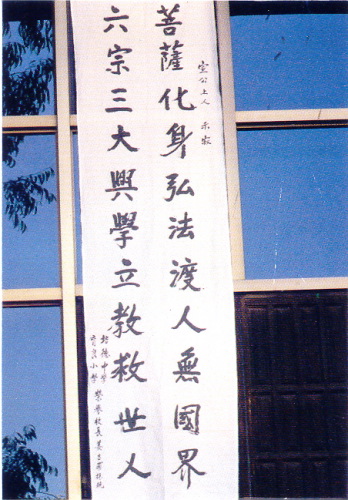 宣公上人 示寂
菩薩化身弘法渡人無國界
六宗三大興學立教救世人
培德中學
育良小學
榮譽校長